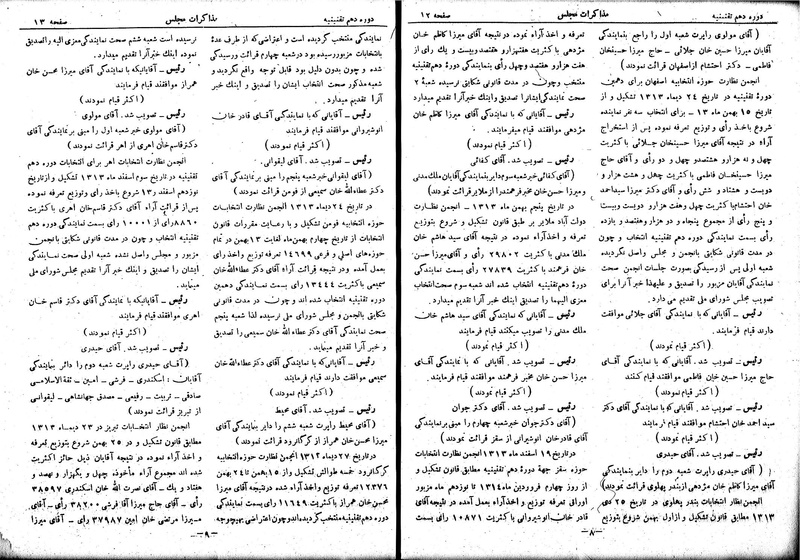 دوره دهم تقنینیه
مذاکرات مجلس
صفحه ۱۲
( آقای مولوی راپرت شعبه اول را راجع بنمایندگی
آقایان میرزا حسین خان جلائی - حاج میرزا حسینخان
فاطمی - دکتر احتشام از اصفهان قرائت نمودند)
انجمن نظارت حوزه انتخابیه اصفهان برای دهمین
دورهٔ تقنینیه در تاریخ ۲۴ دیماه ۱۳۱۳ تشکیل و از
تاریخ ۱۵ بهمن ماه ۱۳ - برای انتخاب سه نفر نماینده
شروع باخذ رأی و توزیع تعرفه نموده پس از استخراج
آراء در نتیجه آقای میرزا حسینخان جلائی باکثریت
چهل و نه هزارو هشتصدو چهل و دو رأی و آقای حاج
میرزا حسینخان فاطمی باکثریت چهل و هشت هزار و
دویست و هشتاد و شش رأی و آقای دکتر سیداحمد
خان احتشامبا کثریت چهل وهفت هزارو دویست
و پنج رأی از مجموع پنجاه و دو هزارو هفتصد و یازده
رأی بسمت نمایندگی دورهٔ دهم تقنینیه انتخاب و چون
در مدت قانونی شکایتی بانجمن و مجلس واصل نگردیده
شعبه اول پس از رسیدگی بصورت جلسات انجمن صحت
انتخاب آقایان مزبور را تصدیق و علیهذا خبر آنرا برای
تصویب مجلس شورای ملی تقدیم می دارد.
رئیس - آقایانی که با نمایندگی آقای جلائی موافقت
دارند قیام فرمایند.
( اکثر قیام نمودند )
رئیس - تصویب شد. آقایانی که با نمایندگی آقای
حاج میرزا حسین خان فاطمی موافقند قیام کنند
( اکثر قیام نمودند )
رئیس - تصویب شد. آقایانی که با نمایندگی آقای دکتر
سید احمد خان احتشام موافقند قیام نمایند
( اکثر قیام نمودند )
رئیس - تصویب شد. آقای حیدری
( آقای حیدری راپرت شعبه دوم را دایر بنمایندگی
آقای میرزا کاظم خان مژدهی ازبندر پهلوی قرائت نمودند)
انجمن نظار انتخابات بندر پهلوی در تاریخ ۲۵ دی
۱۳۱۳ مطابق قانون تشکیل و ازاول بهمن شروع بتوزیع
تعرفه و اخذ آراء نموده در نتیجه آقای میرزا کاظم خان
مژدهی با کثریت هفتهزارو هفتصدوبیست و یك رأی از
هفت هزارو هفتصد وچهل رأی بنمایندگی دورهٔ دهم تقنینیه
منتخب وچون در مدت قانونی شکایتی نرسیده شعبهٔ ۲
صحت نمایندگی ایشانرا تصدیق و اینك خبر آنرا تقدیم میدارد
رئیس - آقایانی که با نمایندگی آقای میرزا کاظم خان
مژدهی موافقند قیام میفرمایند.
( اکثر قیام نمودند )
رئیس - تصویب شد . آقای کفائی
( آقای کفائی خبر شعبه سوم دایر بنمایندگی آقایان ملك مدنی
و میرزا حسن خان مخبر فرهمندرا از ملایر قرائت نمودند)
در تاریخ پنجم بهمن ماه ۱۳۱۳ - انجمن نظارت
دولت آباد ملایر بر طبق قانون تشکیل و شروع بتوزیع
تعرفه و اخذ آراء نموده در نتیجه آقای سید هاشم خان
ملك مدنی با کثریت ۲۹۸۰۲ رأی و آقای میرزا حسن
خان فرهمند با کثریت ۲۷۸۳۹ رأی بسمت نمایندگی
دورهٔ دهم تقنینیه انتخاب شده اند شعبه سوم صحت انتخاب
معزی الیهما را تصدیق اینك خبر آنرا تقدیم میدارد.
رئیس - آقایانی که نمایندگی آقای سید هاشم خان
ملك مدنی را تصویب میکنند قیام فرمایند
( اکثر قیام نمودند )
رئیس - تصویب شد. آقایانی که با نمایندگی آقای
میرزا حسن خان مخبر فرهمند موافقند قیام فرمایند.
( اکثر قیام نمودند)
رئیس - تصویب شد. آقای دکتر جوان
( آقای دکترجوان خبرشعبه چهارم را مبنی برنمایندگی
آقای قادرخان انوشیرانی از سقز قرائت نمودند)
در تاریخ ۱۹ اسفند ماه ۱۳۱۳ انجمن نظارت انتخابات
حوزه سقز جهة دورهٔ دهم تقنینیه مطابق قانون تشکیل و
از روز چهارم فروردین ماه ۱۳۱۴ تا نوزدهم ماه مزبور
اوراق تعرفه توزیع و اخذ آراء بعمل آمده در نتیجه آقای
قادر خان انوشیروانی با کثریت ۱۰۸۷۱ رأی بسمت
- ۸ -
دوره دهم تقنینیه
مذاکرات مجلس
صفحه ۱۳
نمایندگی منتخب گردیده است و اعتراضی که از طرف عدهٔ
بانتخابات مزبوررسیده بود درشعبه چهارم قرائت ورسیدگی
شده و چون بدون دلیل بود قابل توجه واقع نگردید و
شعبه مذکور صحت انتخاب ایشان را تصدیق و اینك خبر
آنرا تقدیم میدارد.
رئیس - آقایانی که با نمایندگی آقای قادر خان
انوشیروانی موافقند قیام فرمایند
( اکثر قیام نمودند )
رئیس - تصویب شد. آقای لیقوانی.
( آقای لیقوانی خبر شعبه پنجم را مبنی برنمایندگی آقای
دکتر عطاء الله خان سمیعی از فومن قرائت نمودند)
در تاریخ ۲۴ دیماه ۱۳۱۳ انجمن نظارت انتخابات
حوزه انتخابیه فومن تشکیل و با رعایت مقررات قانون
انتخابات از تاریخ چهارم بهمن ماه لغایت ۱۳ بهمن در تمام
حوزه های اصلی و فرعی ۱۴۶۹۹ تعرفه توزیع واخذ رأی
بعمل آمده ودر نتیجه قرائت آراء آقای دکتر عطاء الله خان
سمیعی باکثریت ۱۳۴۴۴ رأی بسمت نمایندگی دهمین
دوره تقنینیه انتخاب شده اند و چون در مدت قانونی
بانجمن و مجلس شورای ملی نرسیده لذا شعبه پنجم
صحت نمایندگی آقای دکتر عطاء الله خان سمیعی را تصدیق
و خبر آنرا تقدیم مینماید.
رئیس - آقایانی که با نمایندگی آقای دکتر عطاء الله خان
سمیعی موافقت دارند قیام فرمایند
( اکثر قیام نمودند )
رئیس - تصویب شد. آقای محیط
( آقای محیط راپرت شعبه ششم را دایر بنمایندگی آقای
میرزا محسن خان همراز از کرگانرود قرائت نمودند)
در تاریخ ۲۷ دیماه ۱۳۱۳ انجمن نظارت حوزه انتخابیه
کرگانرود خمسه طوالش تشکیل و از ۱۵ بهمن تا ۲۴ بهمن
۱۲۳۷۶ تعرفه توزیع و اخذ آراء شده درنتیجه آقای میرزا
محسن خان همراز با کثریت ۱۱۶۴۹ رأی بسمت نمایندگی
دوره دهم تقنینیه منتخب گردیده اند و چون اعتراضی بهیچوجه
نرسیده است شعبه ششم صحت نمایندگی معزی الیه را تصدیق
نموده اینك خبر آنرا تقدیم میدارد.
رئیس - آقایانیکه با نمایندگی آقای میرزا محسن خان
همراز موافقند قیام فرمایند
( اکثر قیام نمودند )
رئیس - تصویب شد. آقای مولوی
( آقای مولوی خبر شعبه اول را مبنی برنمایندگی آقای
دکتر قاسم خان اهری از اهر قرائت نمودند )
انجمن نظارت انتخابات اهر برای انتخابات دوره دهم
تقنینیه در تاریخ سوم اسفند ماه ۱۳۱۳ تشکیل و ازتاریخ
نوزدهم اسفند ۱۳ شروع باخذ رأی وتوزیع تعرفه نموده
پس از قرائت آراء آقای دکتر قاسم خان اهری باکثریت
۸۸۶۰ رأی از ۱۰۰۰۱ رأی بسمت نمایندگی دوره دهم
تقنینیه انتخاب و چون در مدت قانونی شکایتی بانجمن
مزبور و مجلس واصل نشده شعبه اول صحت نمایندگی
ایشان را تصدیق و اینك خبر آنرا تقدیم مجلس شورای ملی
مینماید.
رئیس - آقایانیکه با نمایندگی آقای دکتر قاسم خان
اهری موافقند قیام فرمایند
( اکثر قیام نمودند )
رئیس - تصویب شد. آقای حیدری
( آقای حیدری راپرت شعبه دوم را دائر بنمایندگی
آقایان : اسکندری - فرشی - امین - ثقة الاسلامی
صادقی - تربیت - رفیعی - مصدق جهانشاهی - لیقوانی
از تبریز قرائت نمودند)
انجمن نظار انتخابات تبریز در ۲۳ دیماه ۱۳۱۳
مطابق قانون تشکیل و در ۲۵ بهمن شروع بتوزیع تعرفه
و اخذ آراء نموده در نتیجه آقایان ذیل حائز اکثریت
شده اند مجموع آراء مأخوذه چهل و یکهزار و نهصد و
هفتاد و یك - آقای نصرت الله خان اسکندری ۳۸۵۹۷
رأی - آقای حاج میرزا آقا فرشی ۳۸۲۰۰ رأی آقای
میرزا مرتضی خان امین ۳۷۹۸۷ رأی آقای میرزا
- ۹ -